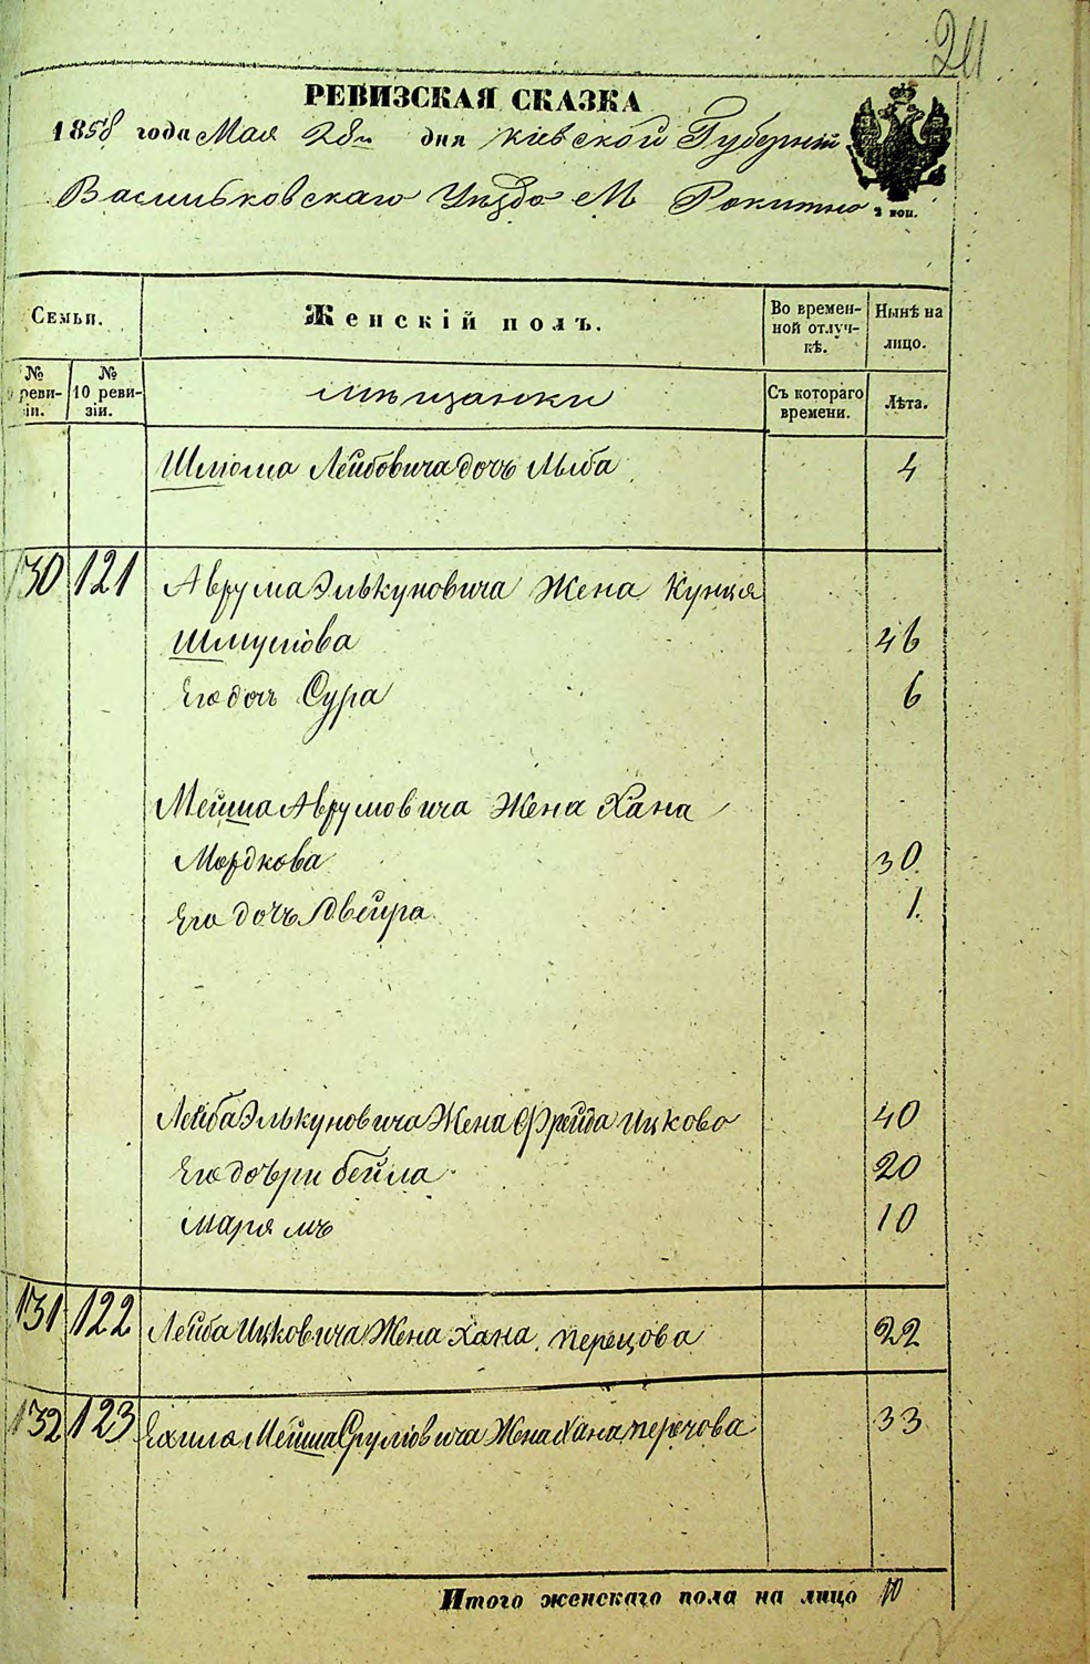 211
РЕВИЗСКАЯ СКАЗКА
1858 года Мая 28го дня Кіевской Губерніи
Васильковскаго Уѣзда М Рокитно
2 коп.
Семьи. Женскій полъ. Во времен-ной отлуч-кѣ. Нынѣ на лицо.
№ реви-зіи. № 10 реви-зіи. Мѣщанки Съ котораго времени. Лѣта.
Шлиома Лейбовича дочь Лыба 4
130 121 Аврума Элькуновича Жена Кунця
Шмулiова 46
Его доч Сура 6
Мейша Аврумовича Жена Хана
Мордкова 30
Его дочь Двейра 1
Лейба Элькуновича Жена Фрейда Ицкова 40
Его дочери бейла 20
Марямъ 10
131 122 Лейба Ицковича Жена Хана перецова 22
132 123 Ехила Мейша Срулiовича Жена Хана перечова 33
Итого женскаго пола на лицо 10